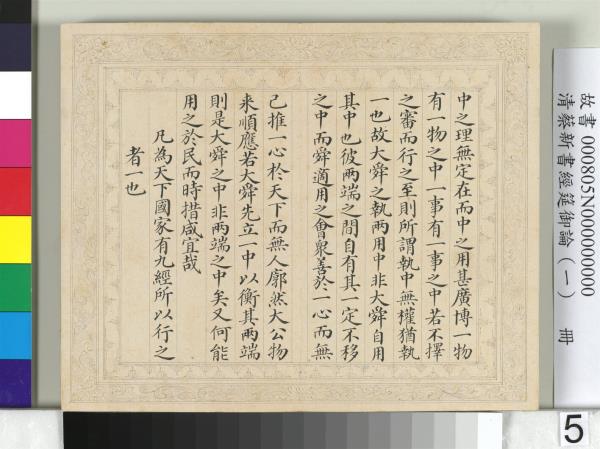 中之理無定在而中之用甚廣博一物
有一物之中一事有一事之中若不擇
之審而行之至則所謂執中無權猶執
一也故大舜之執兩用中非大舜自用
其中也彼兩端之間自有其一定不移
之中而舜適用之會衆善於一心而無
己推一心於天下而無人廓然大公物
来順應若大舜先立一中以衡其兩端
則是大舜之中非兩端之中矣又何能
用之於民而時措咸宜哉
凡為天下國家有九經所以行之
者一也
故書 000805N000000000
清蔡新書經筵御論（一） 冊
5